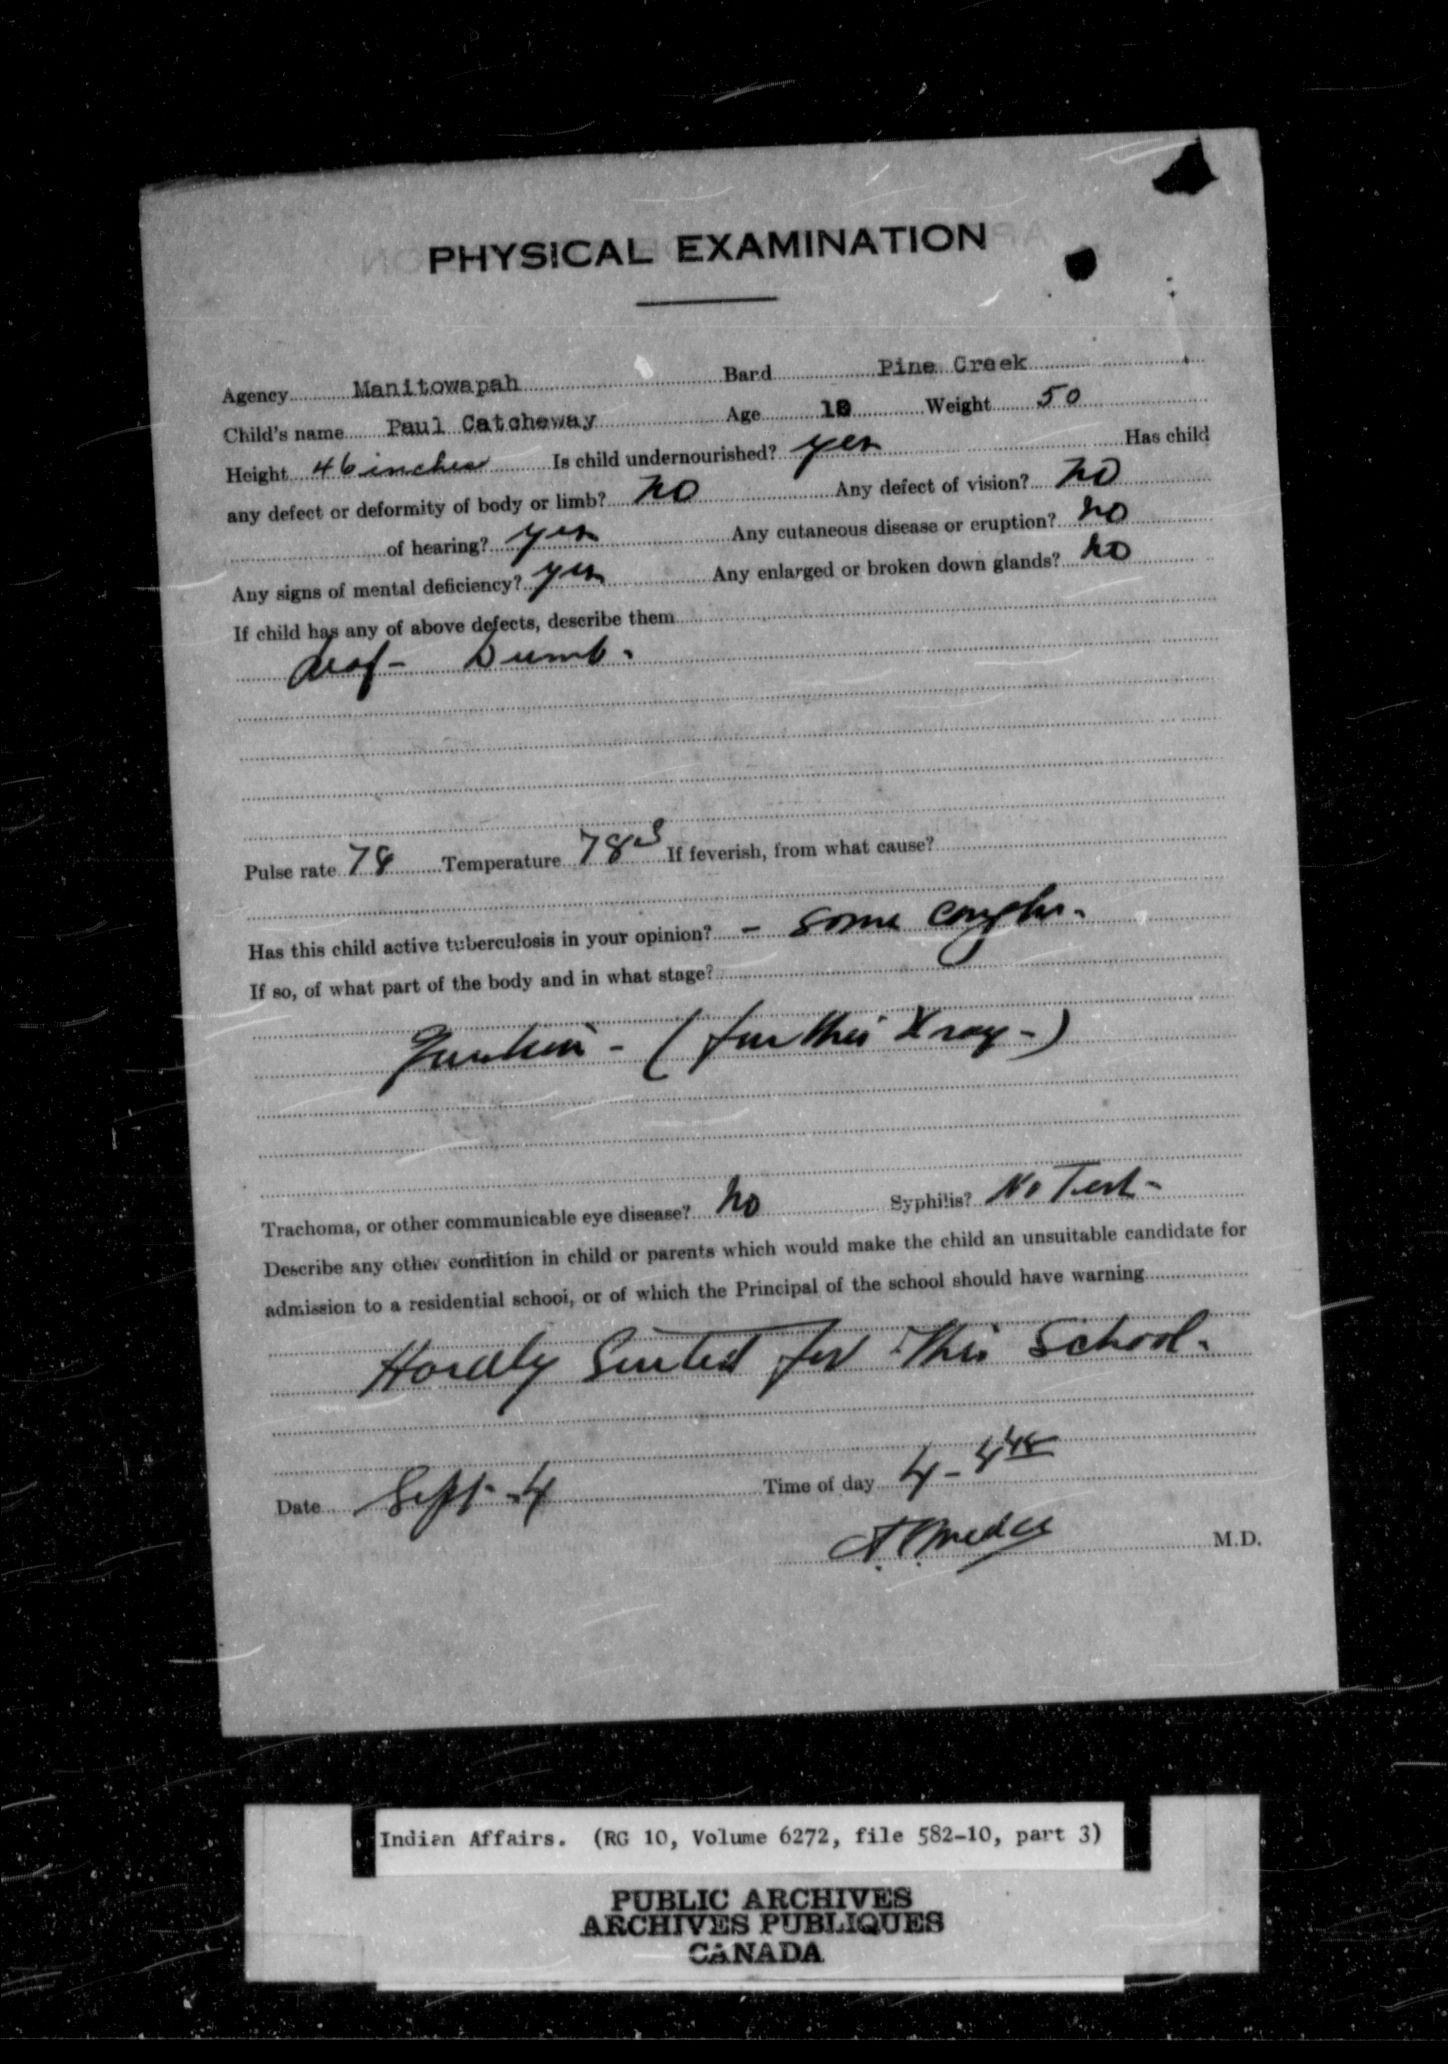 PHYSICAL EXAMINATION
Agency Manitowapah Band Pine Creek
Child's name Paul Catcheway Age 10 Weight 50
Height 46 inches Is child undernourished? yes Has child
any defect or deformity of body or limb? no Any defect of vision? no
of hearing? yes Any cutaneous disease or eruption? no
Any signs of mental deficiency? yes Any enlarged or broken down glands? no
If child has any of above defects, describe them
deaf - Dumb.
Pulse rate 78 Temperature If feverish, from what cause?
Has this child active tuberculosis in your opinion? - some coughs -
If so, of what part of the body and in what stage?
( further X ray - )
Trachoma, or other communicable eye disease? no Syphilis? No Test -
Describe any other condition in child or parents which would make the child an unsuitable candidate for
admission to a residential school, or of which the Principal of the school should have warning
Hardly Suited for This School.
Date Sept - 4 Time of day 4 - 4 45
M.D.
Indian Affairs. (RG 10, Volume 6272, file 582-10, part 3)
PUBLIC ARCHIVES
ARCHIVES PUBLIQUES
CANADA